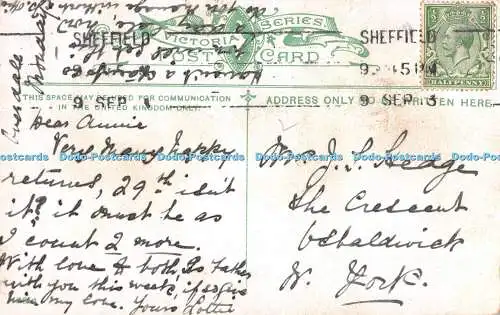 VICTORIA SERIES
POST CARD
THIS SPACE MAY BE USED FOR COMMUNICATION
IN THE UNITED KINGDOM ONLY.
ADDRESS ONLY TO BE WRITTEN HERE.
SHEFFIELD
9 SEP
SHEFFIELD
45 PM
9 SEP 3
HALFPENNY
Dear Annie
Very Many happy
returns, 29th isn't
it? it must be as
I count 2 more.
With love to both, Is Father
with you this week, if so give
him my love. Yours Lottie
Mrs J. S.
The Crescent
Osbaldwick
N. York.
Dodo-Postcards Dodo-Postcards Dodo-Postcards Dodo-Postcards Dodo-Postcards